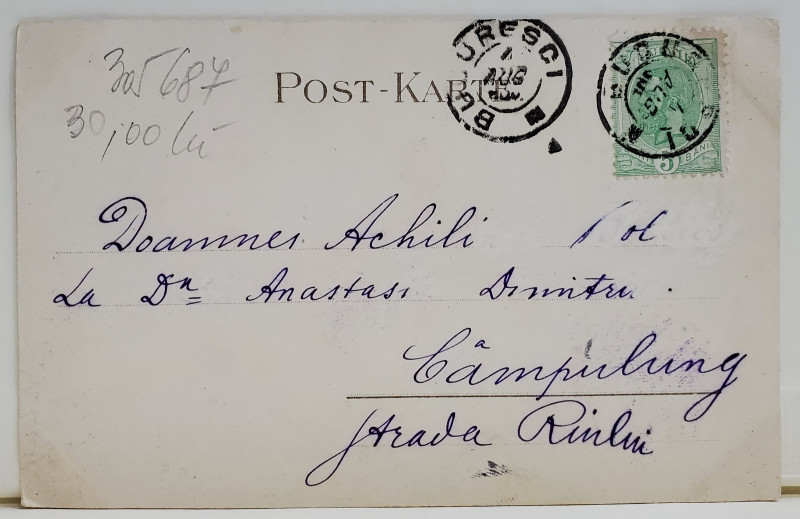 305687
30,00 lei
POST-KARTE
BUCURESCI
1
AUG
BUCURESCI
AUG
5 BANI
Doamnei Achili
La Dn Anastasi Dimitru
Câmpulung
Strada Riului